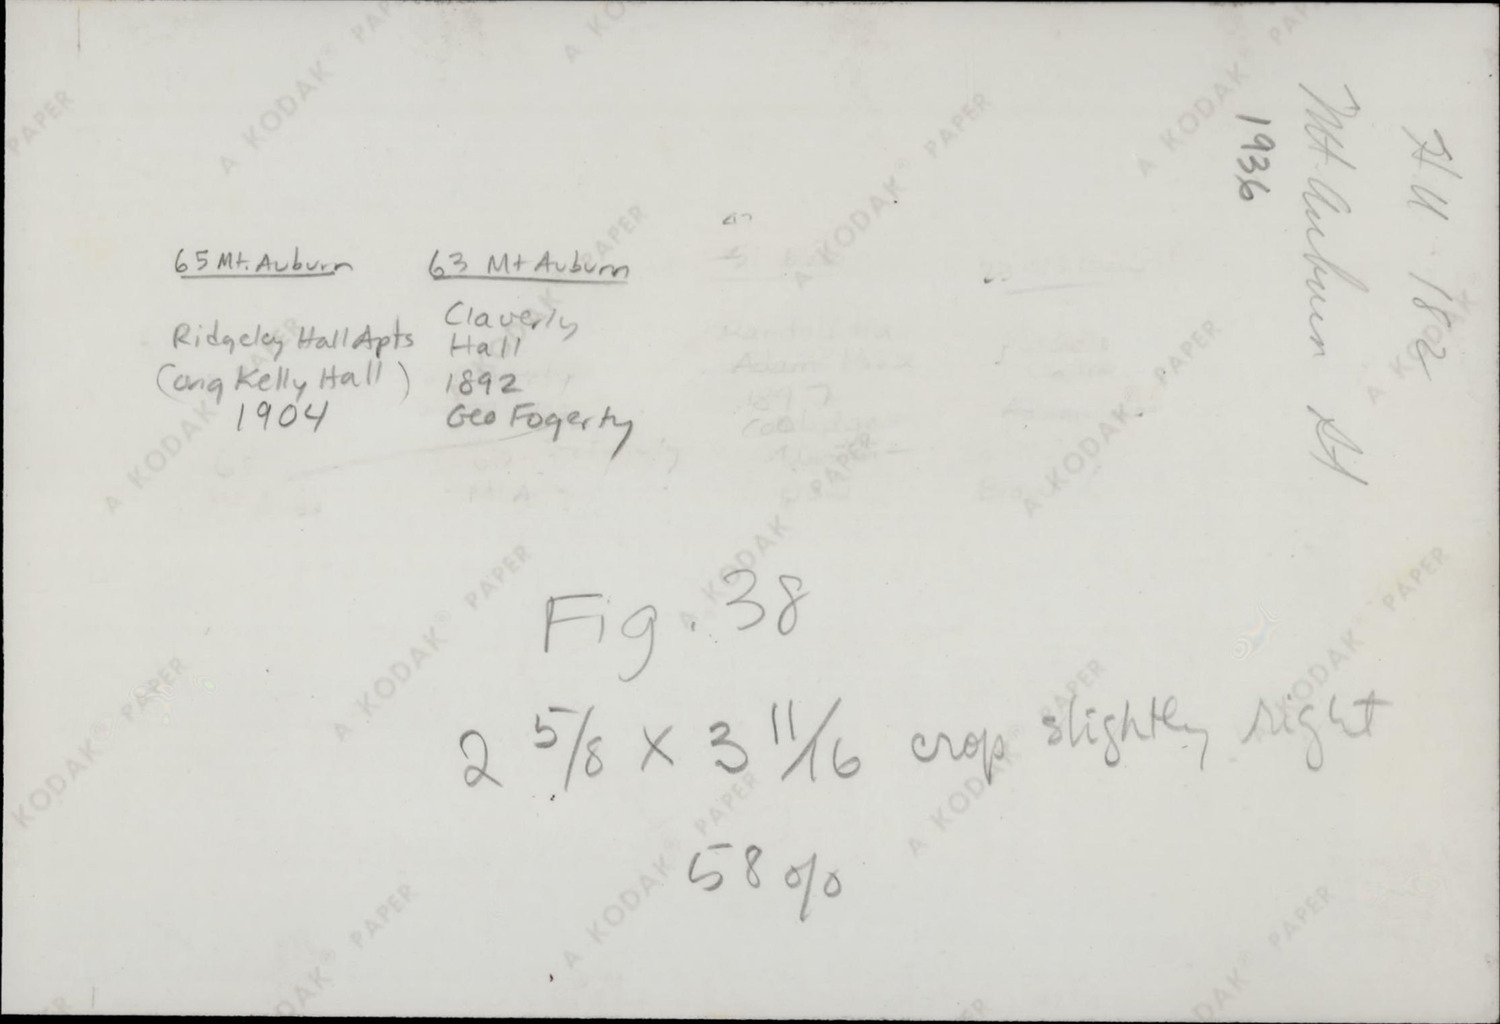 65 Mt. Auburn
Ridgeley Hall Apts
(orig Kelly Hall)
1904
63 Mt Auburn
Claverly
Hall
1892
Geo Fogerty
Fig. 38
2 5/8 X 3 11/16 crop slightly right
58%
Mt Auburn St
1936
A KODAK® PAPER